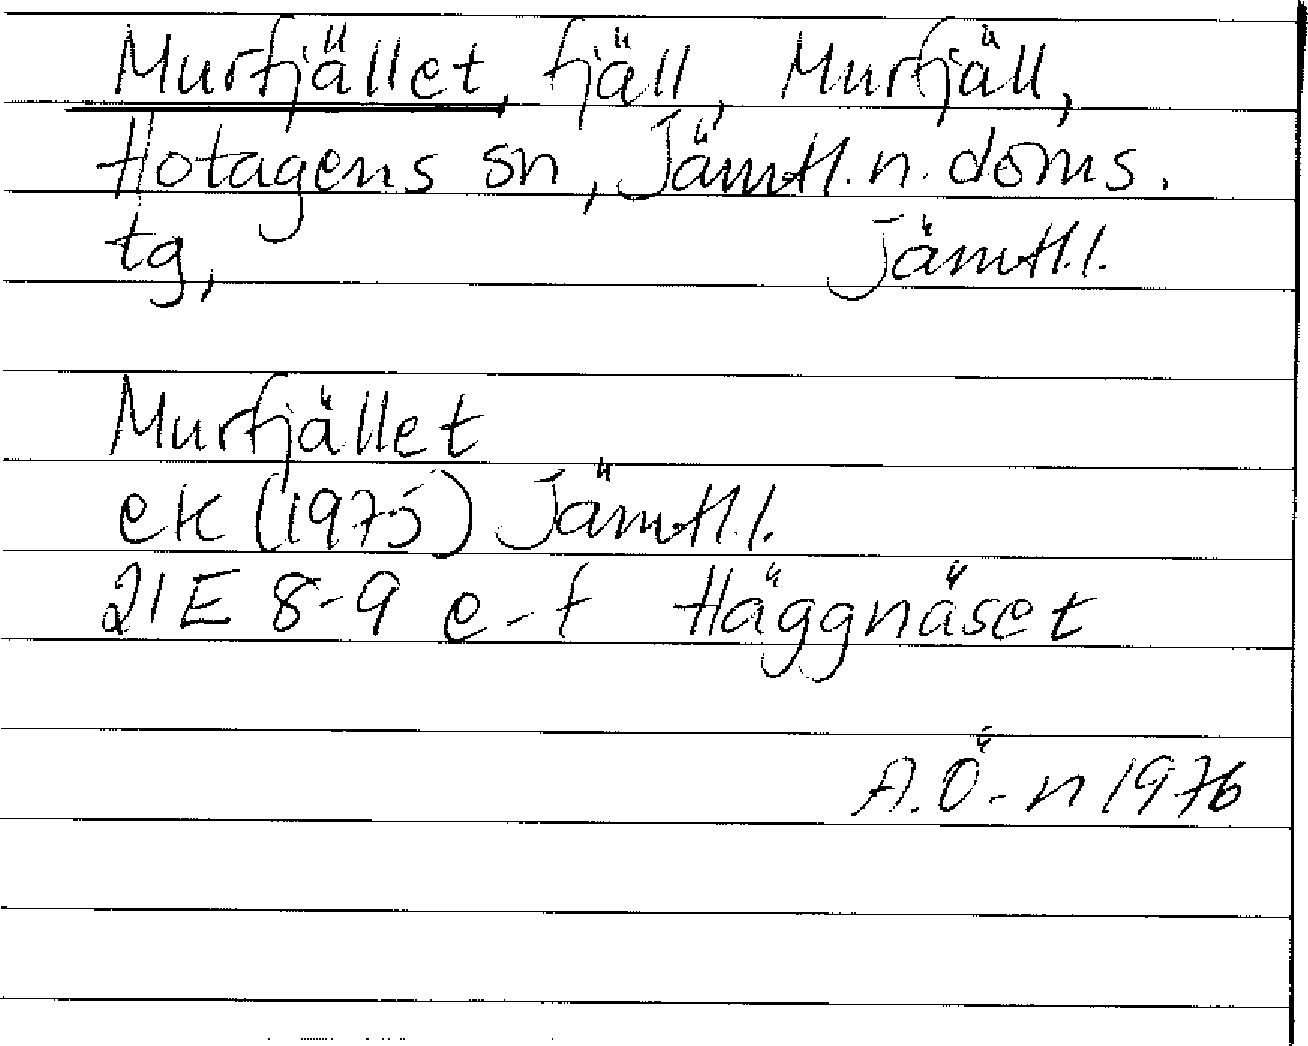 Murfjället, fjäll, Murfjäll,
Hotagens sn, Jämtl. n. doms.
tg, Jämtl. l.
Murfjället
ek (1975) Jämtl. l.
21E 8-9 e-f Häggnäset
A.Ö-n 1976